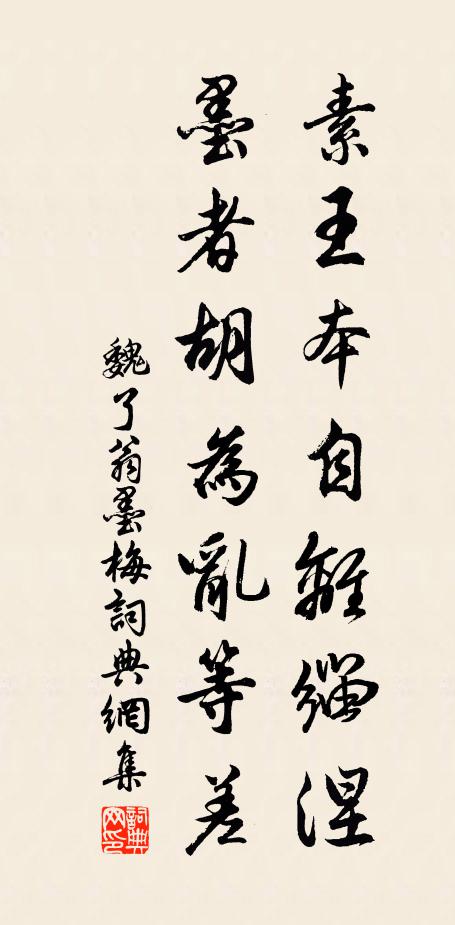 素王本自離緇涅
墨者胡為亂等差
魏了翁墨梅詞典網集
詞典网印